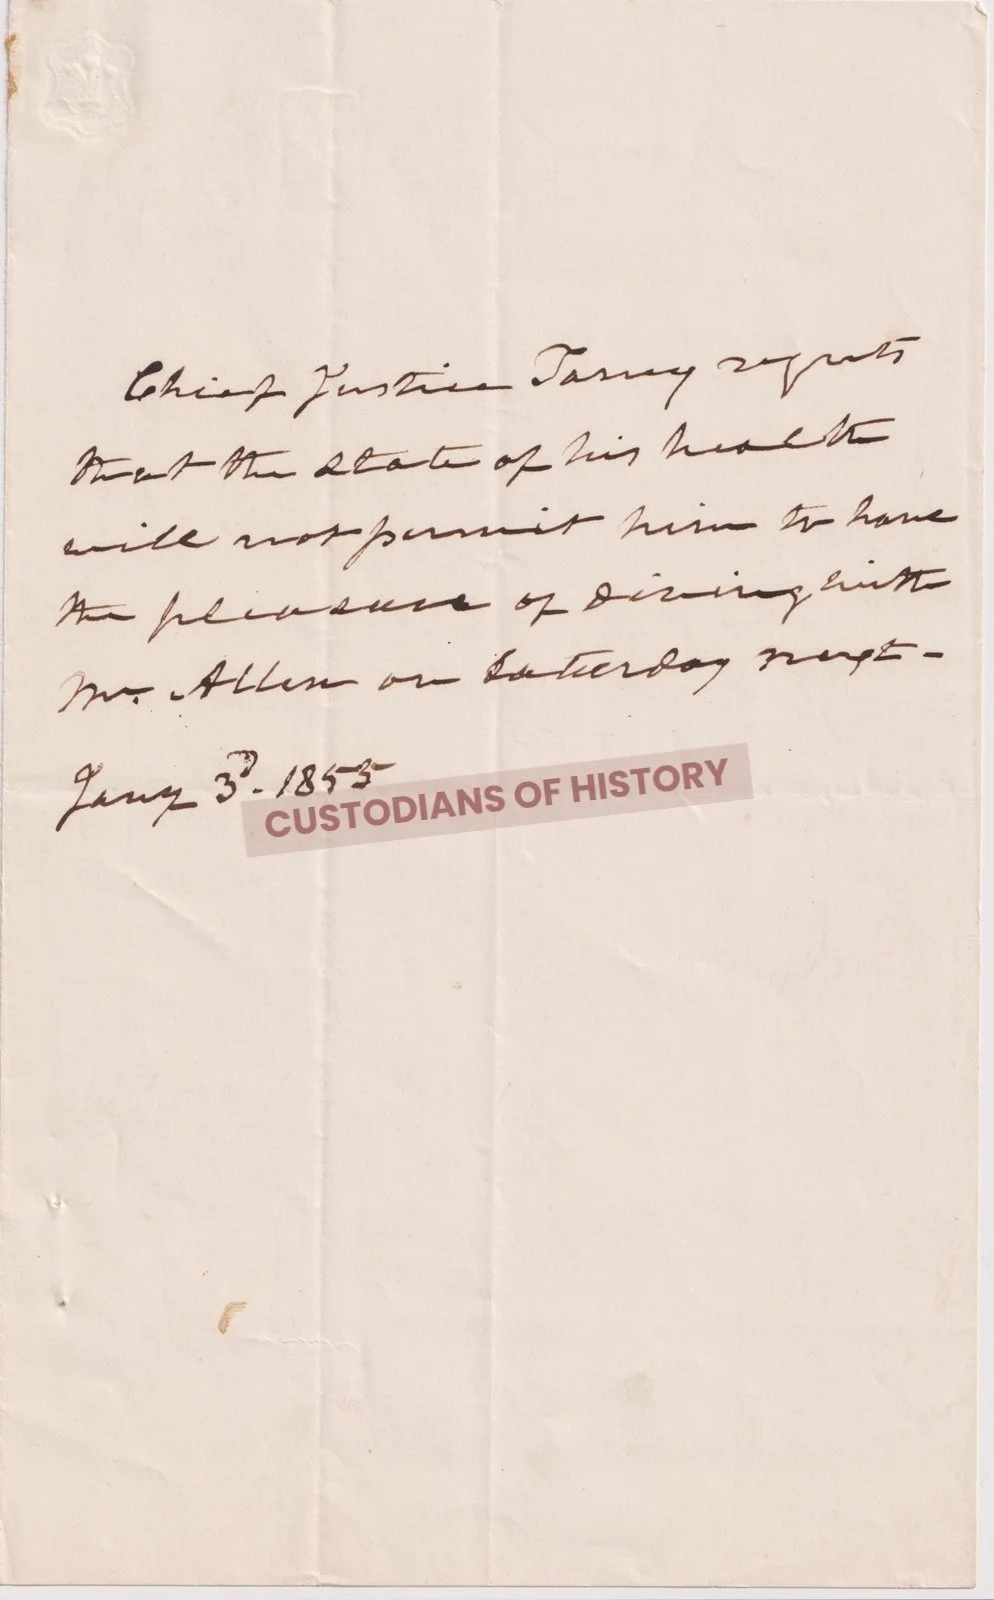 Chief Justice Taney regrets
that the state of his health
will not permit him to have
the pleasure of dining with
Mr. Allen on Saturday next -
Jany 3d. 1855
CUSTODIANS OF HISTORY